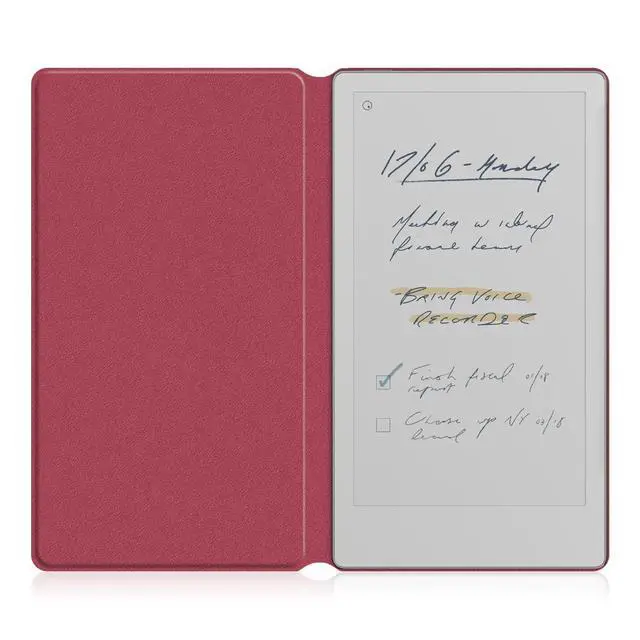 17/06 - Monday
Meeting w
team
- BRING VOICE
RECORDER
Finish fiscal 01/08
report
up NY 03/18